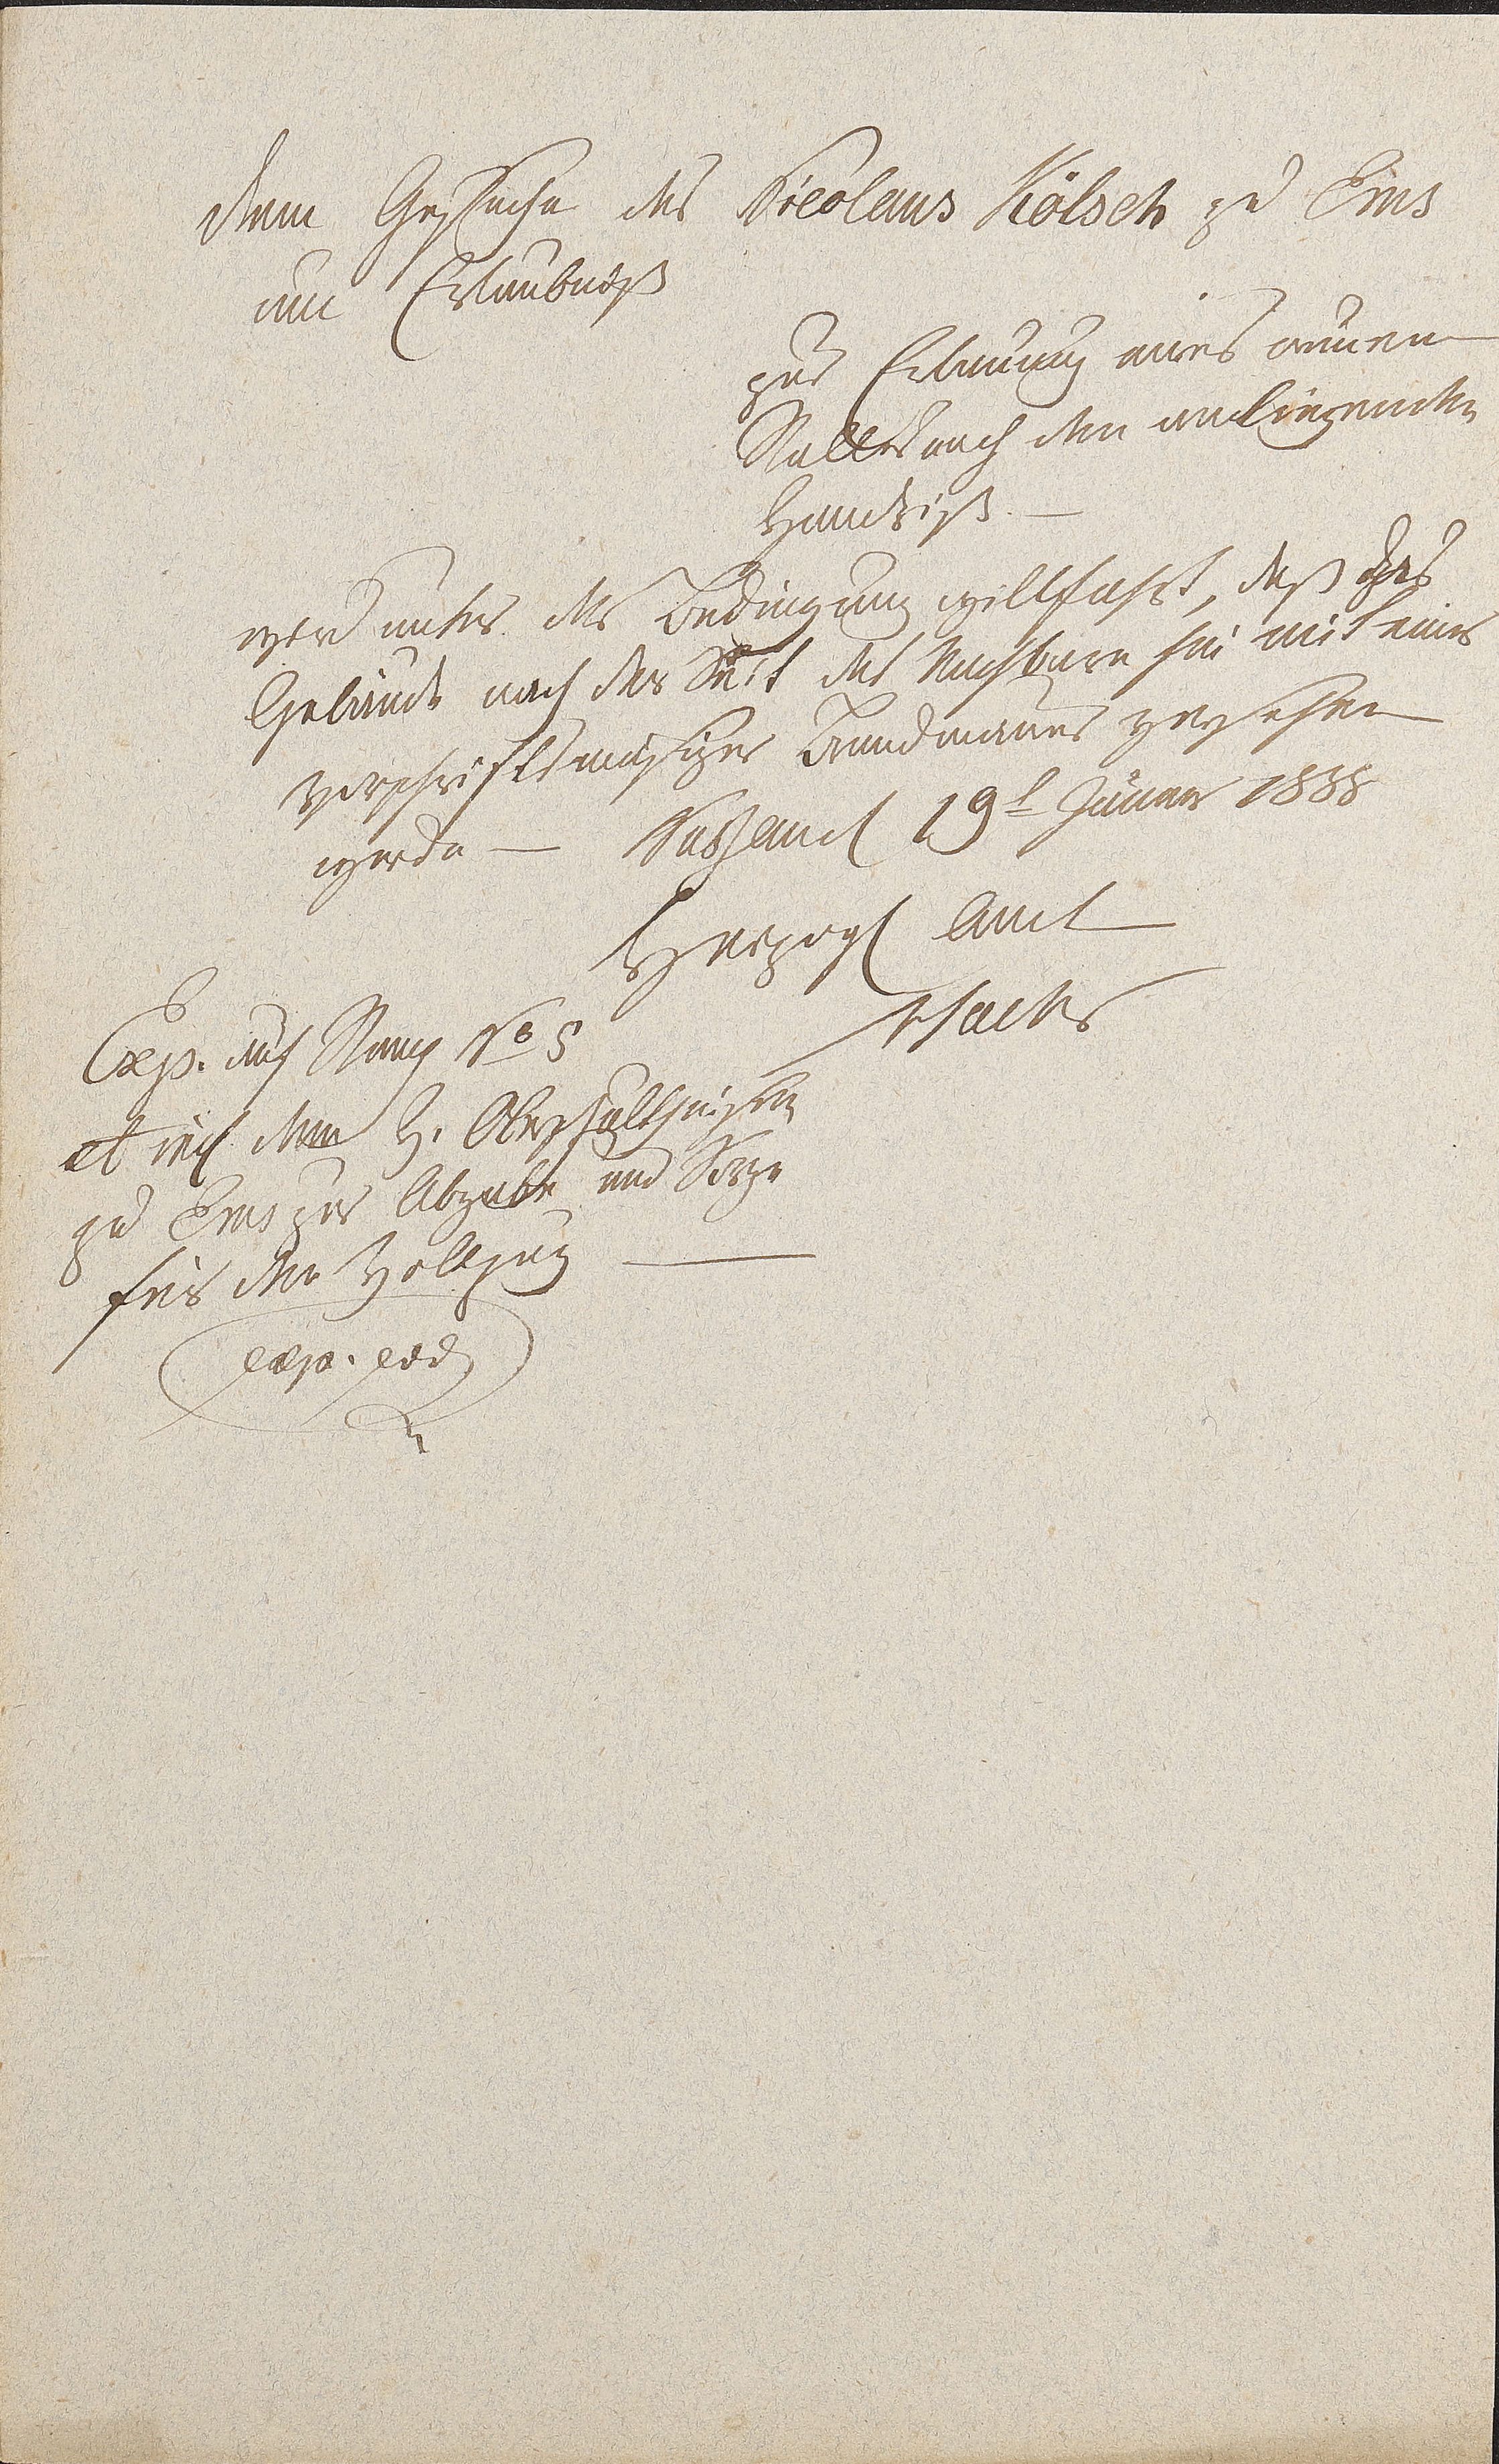 dem Gesuche des Nicolaus Kölsch zu Ems
um Erlaubniß
zur Erbauung eines neuen
Stalles nach dem anliegenden
Handriß. —
wird unter der Bedingung willfahrt, daß das
Gebäude nach der Seit des Nachbarn hin mit einer
vorschriftsmäsiger Brandmauer versehen
werde — Nassau d 19t Jäner 1838
Herzogl Amt
Exp. auf Stemp No 5
et incl dem H. Oberschultheisen
zu Ems zur Abgabe und Sorge
für den Vollzug —
exp. eod